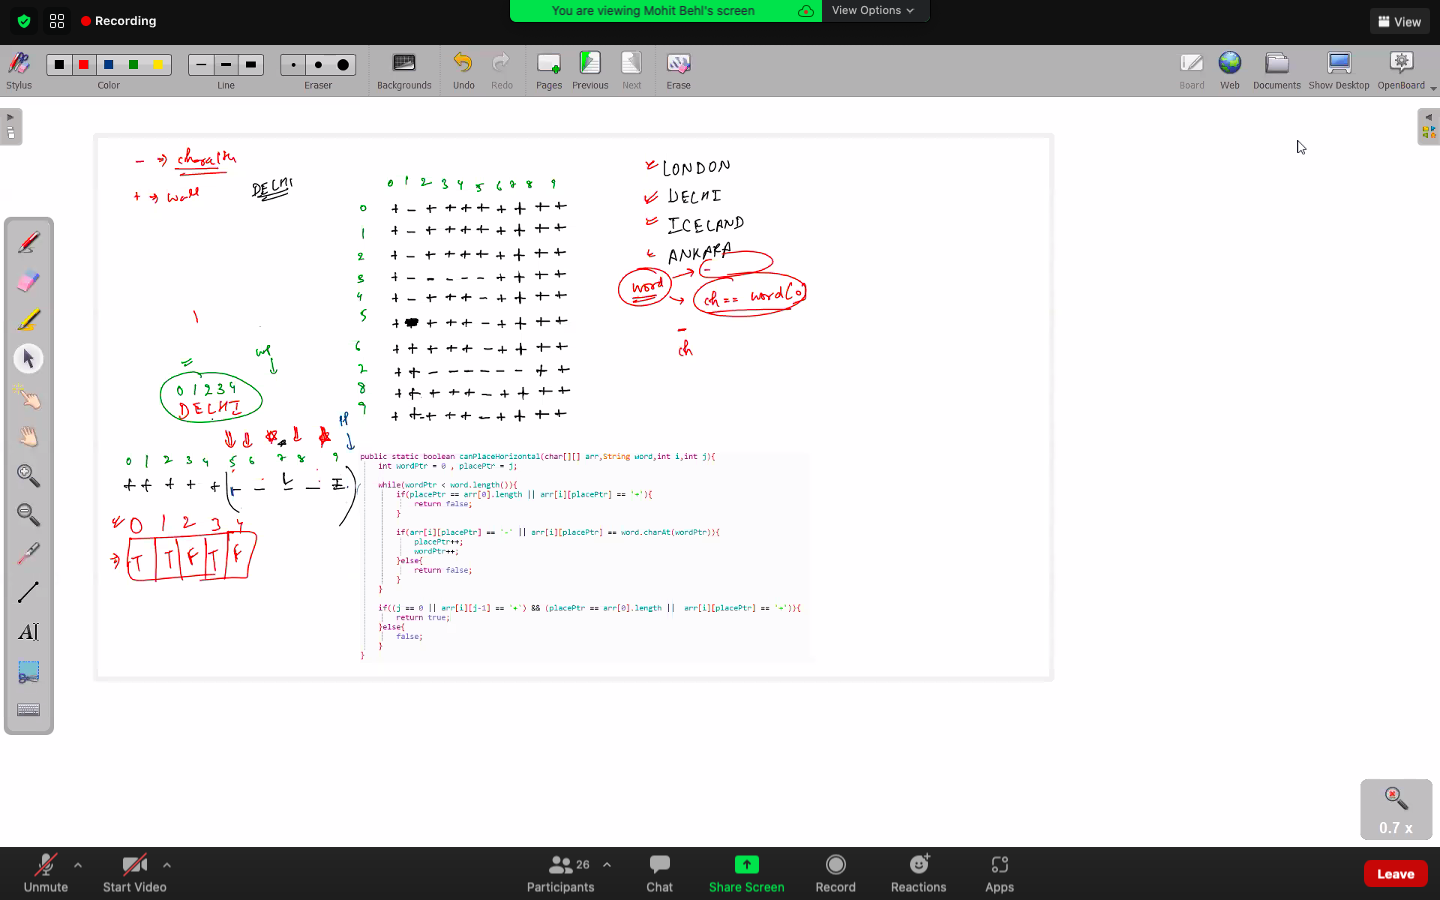 Recording
You are viewing Mohit Behl's screen
View Options
View
Stylus
Color
Line
Eraser
Backgrounds
Undo
Redo
Pages
Previous
Next
Erase
Board
Web
Documents
Show Desktop
OpenBoard
+ → wall
DELHI
LONDON
DELHI
ICELAND
ANKARA
word
ch == word[0]
-
ch
0 1 2 3 4 5 6 7 8 9
0 + - + + + + + + + +
1 + - + + + + + + + +
2 + - + + + + + + + +
3 + - - - - - + + + +
4 + - + + + - + + + +
5 + + + + - + + + +
6 + + + + + - + + + +
2 + + - - - - - - + +
8 + + + + + + + + + +
9 + + + + + - + + + +
0 1 2 3 4
DELHI
0 1 2 3 4 5 6 7 8 9
+ + + + + - - L - I
0 1 2 3 4
T T F T F
public static boolean canPlaceHorizontal(char[][] arr,String word,int i,int j){
int wordPtr = 0 , placePtr = j;
while(wordPtr < word.length()){
if(placePtr == arr[0].length || arr[i][placePtr] == '+'){
return false;
}
if(arr[i][placePtr] == '-' || arr[i][placePtr] == word.charAt(wordPtr)){
placePtr++;
wordPtr++;
}else{
return false;
}
}
if((j == 0 || arr[i][j-1] == '+') && (placePtr == arr[0].length || arr[i][placePtr] == '+')){
return true;
}else{
false;
}
}
0.7 x
Unmute
Start Video
26
Participants
Chat
Share Screen
Record
Reactions
Apps
Leave